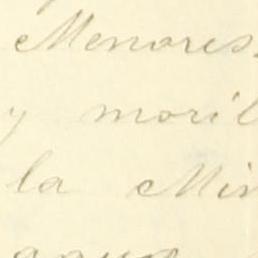 Menores
y moril
la Min
agua